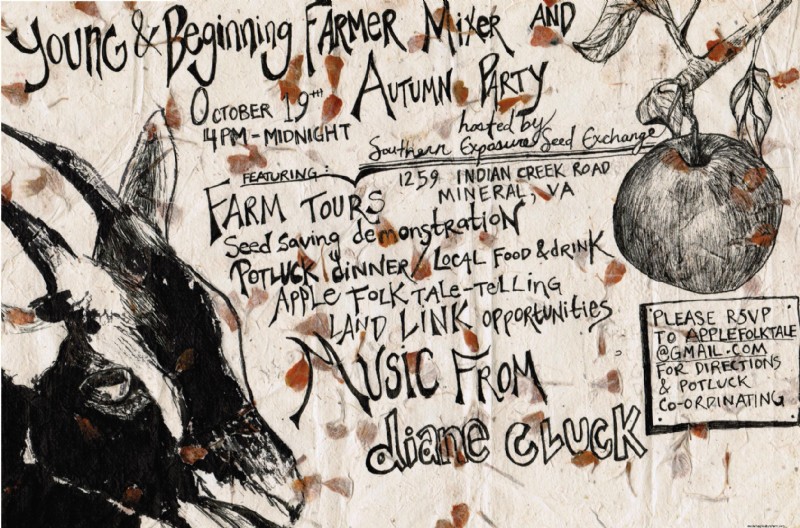 Young & Beginning Farmer Mixer AND
Autumn Party
October 19th
4PM - MIDNIGHT
hosted by
Southern Exposure Seed Exchange
1259 INDIAN CREEK ROAD
MINERAL, VA
FEATURING:
FARM TOURS
Seed Saving demonstration
POTLUCK DINNER/LOCAL FOOD & dRINK
APPLE FOLKTALE-TELLING
LAND LINK opportunities
MUSIC FROM
diane CLUCK
PLEASE RSVP
TO APPLEFOLKTALE
@GMAIL.COM
FOR DIRECTIONS
& POTLUCK
CO-ORDINATING